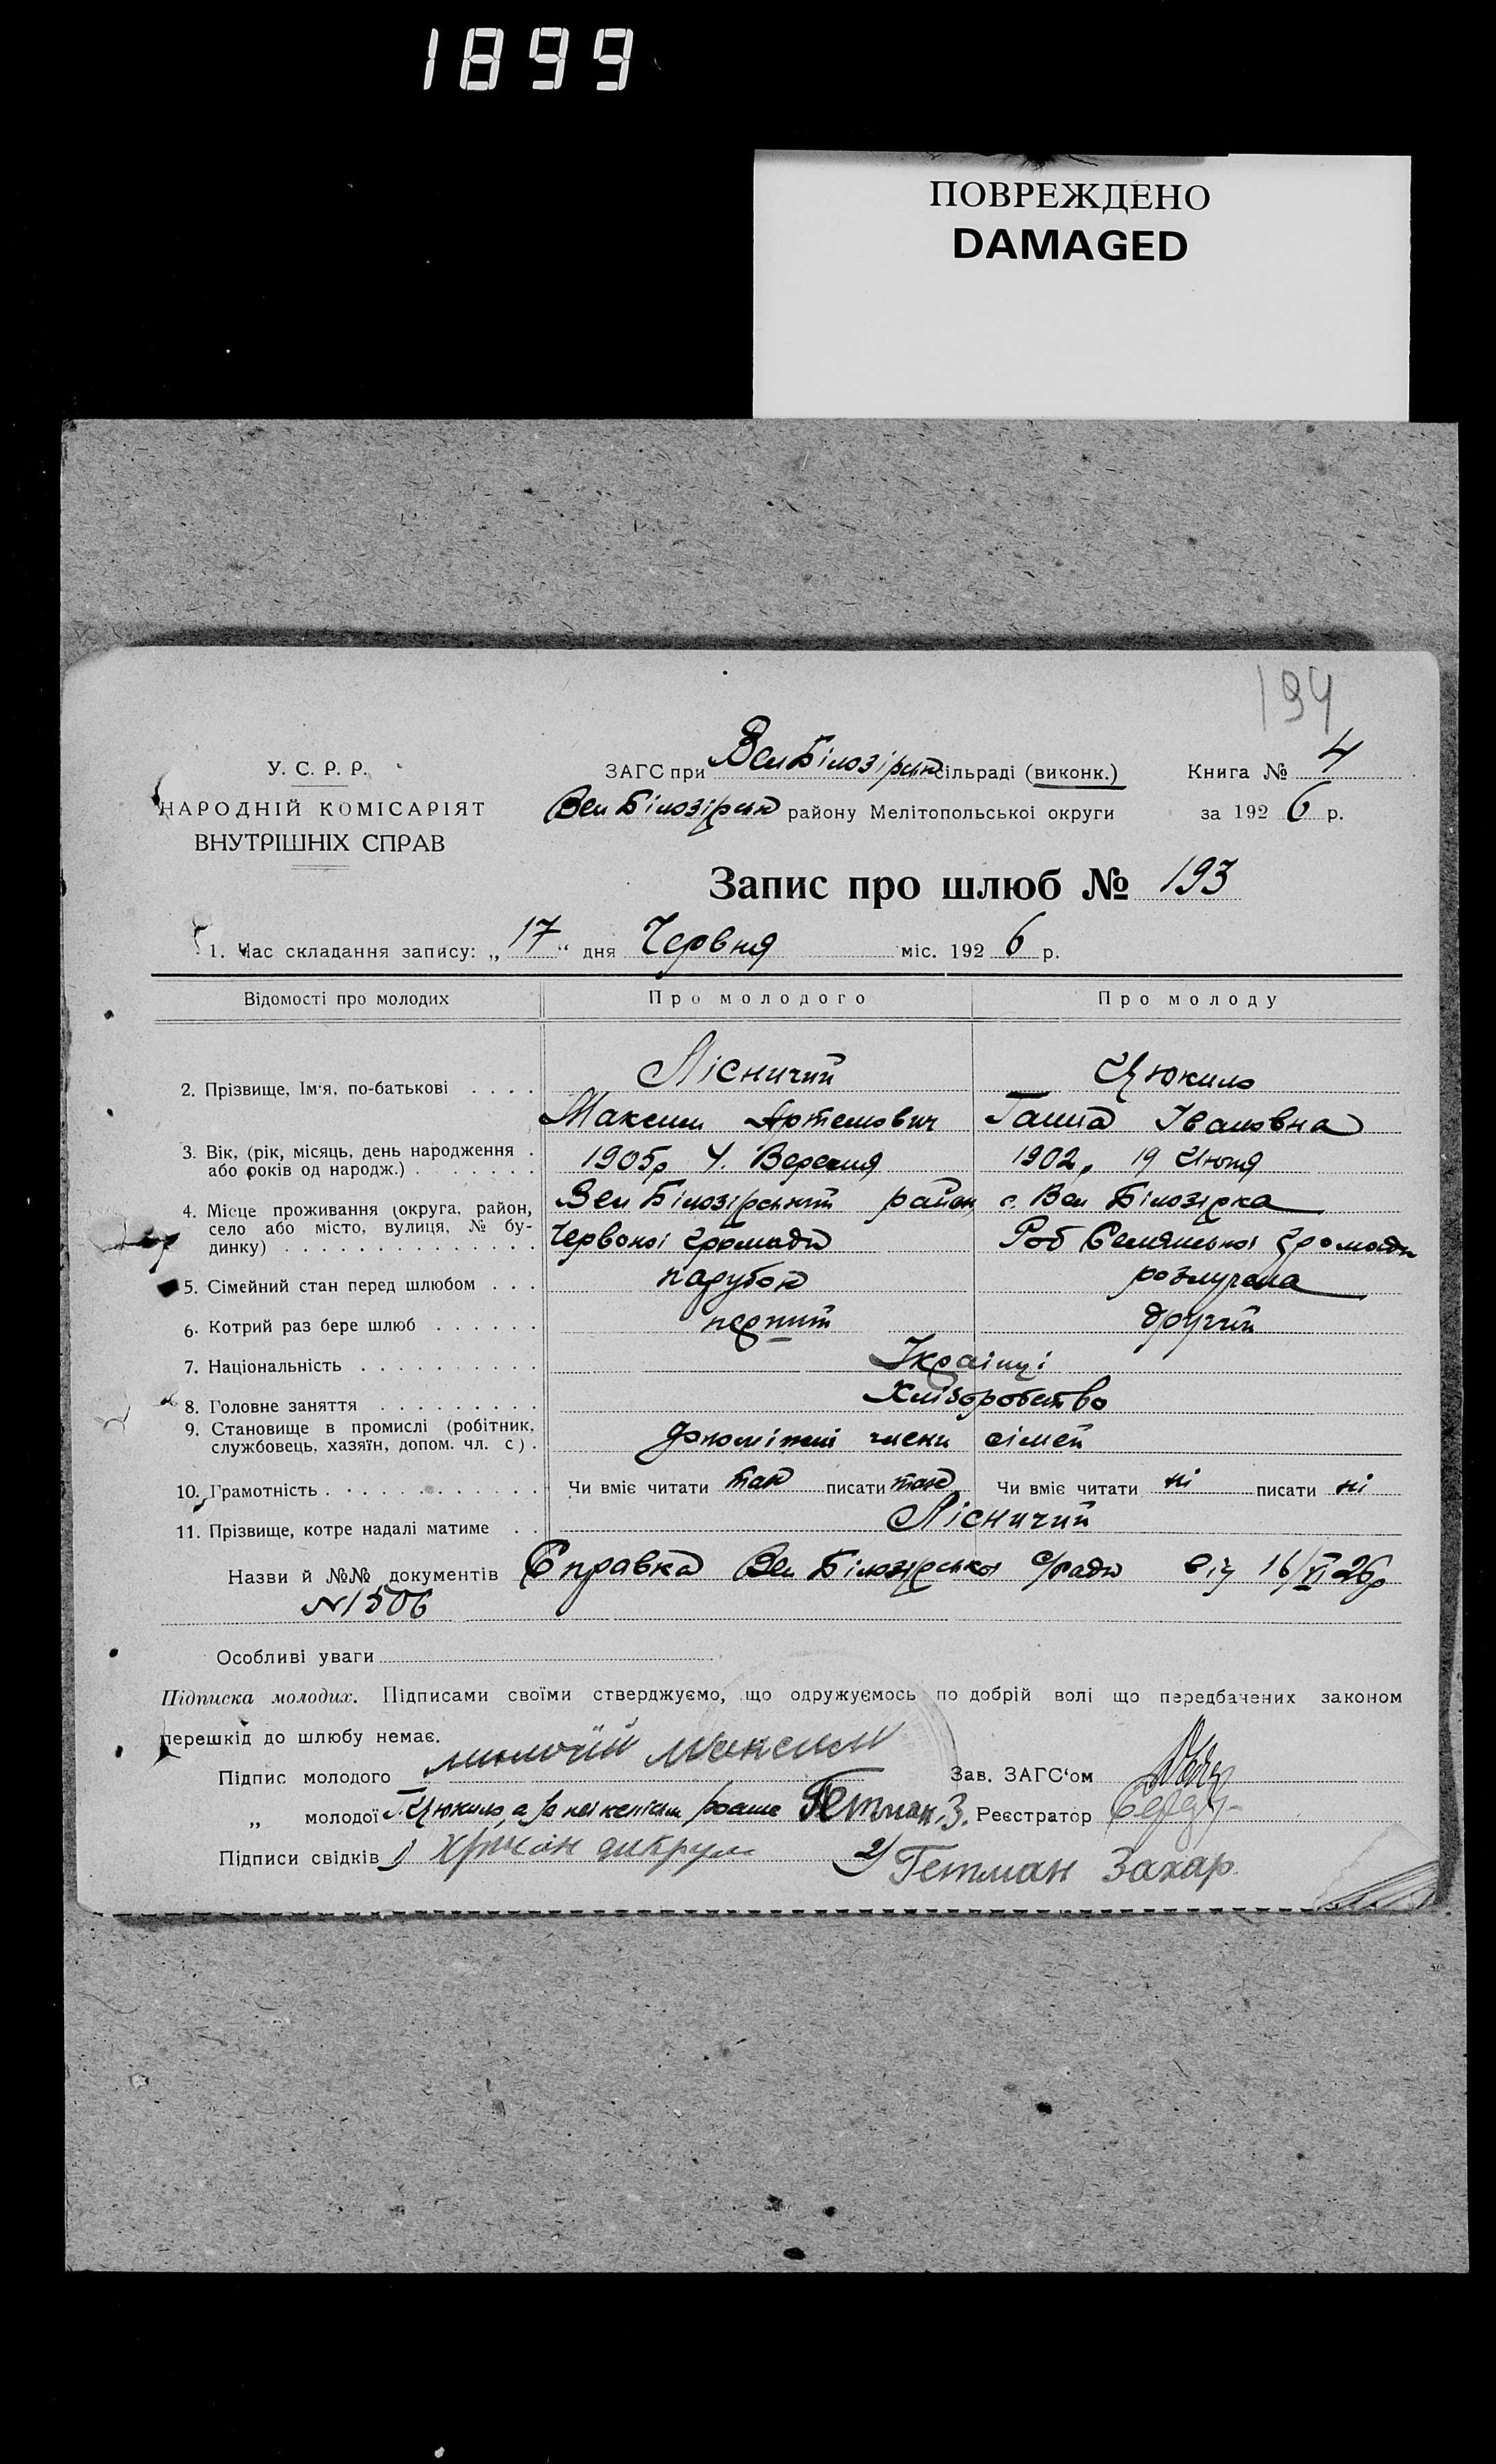 1899
ПОВРЕЖДЕНО
DAMAGED
194
У. С. Р. Р.
НАРОДНІЙ КОМІСАРІЯТ
ВНУТРІШНІХ СПРАВ
ЗАГС при Вел Білозірск сільраді (виконк.) Книга № 4
Вел Білозірск району Мелітопольськоі округи за 1926 р.
Запис про шлюб № 193
1. Час складання запису: „17“ дня Червня міс. 1926 р.
Відомості про молодих Про молодого Про молоду
2. Прізвище, Ім‘я, по-батькові . . . . Лісничий Цюкило
Максим Артемович Ганна Івановна
3. Вік, (рік, місяць, день народження . 1905р 4. Вересня 1902р 19 Июня
або років од народж.) . . . . . . .
4. Місце проживання (округа, район, Вел Білозірський район с. Вел Білозірка
село або місто, вулиця, № бу-
динку) . . . . . . . . . . . . . . Червоноі громади Роб Селянськоі громади
5. Сімейний стан перед шлюбом . . . парубок розлучена
6. Котрий раз бере шлюб . . . . . . перший другий
7. Національність . . . . . . . . . . Українці
8. Головне заняття . . . . . . . . . Хліборобство
9. Становище в промислі (робітник,
службовець, хазяїн, допом. чл. с) . допоміжні члени сімей
10. Грамотність . . . . . . . . . . . Чи вміє читати так писати так Чи вміє читати ні писати ні
11. Прізвище, котре надалі матиме . . Лісничий
Назви й №№ документів Справка Вел Білозірськоі с/ради від 16/VI 26р
№1506
Особливі уваги
Підписка молодих. Підписами своїми стверджуємо, що одружуємось по добрій волі що передбачених законом
перешкід до шлюбу немає.
Підпис молодого Максим Зав. ЗАГС‘ом
„ молодої Г. Цюкило, а за неї Гетман З. Реєстратор
Підписи свідків 1) 2) Гетман Захар.